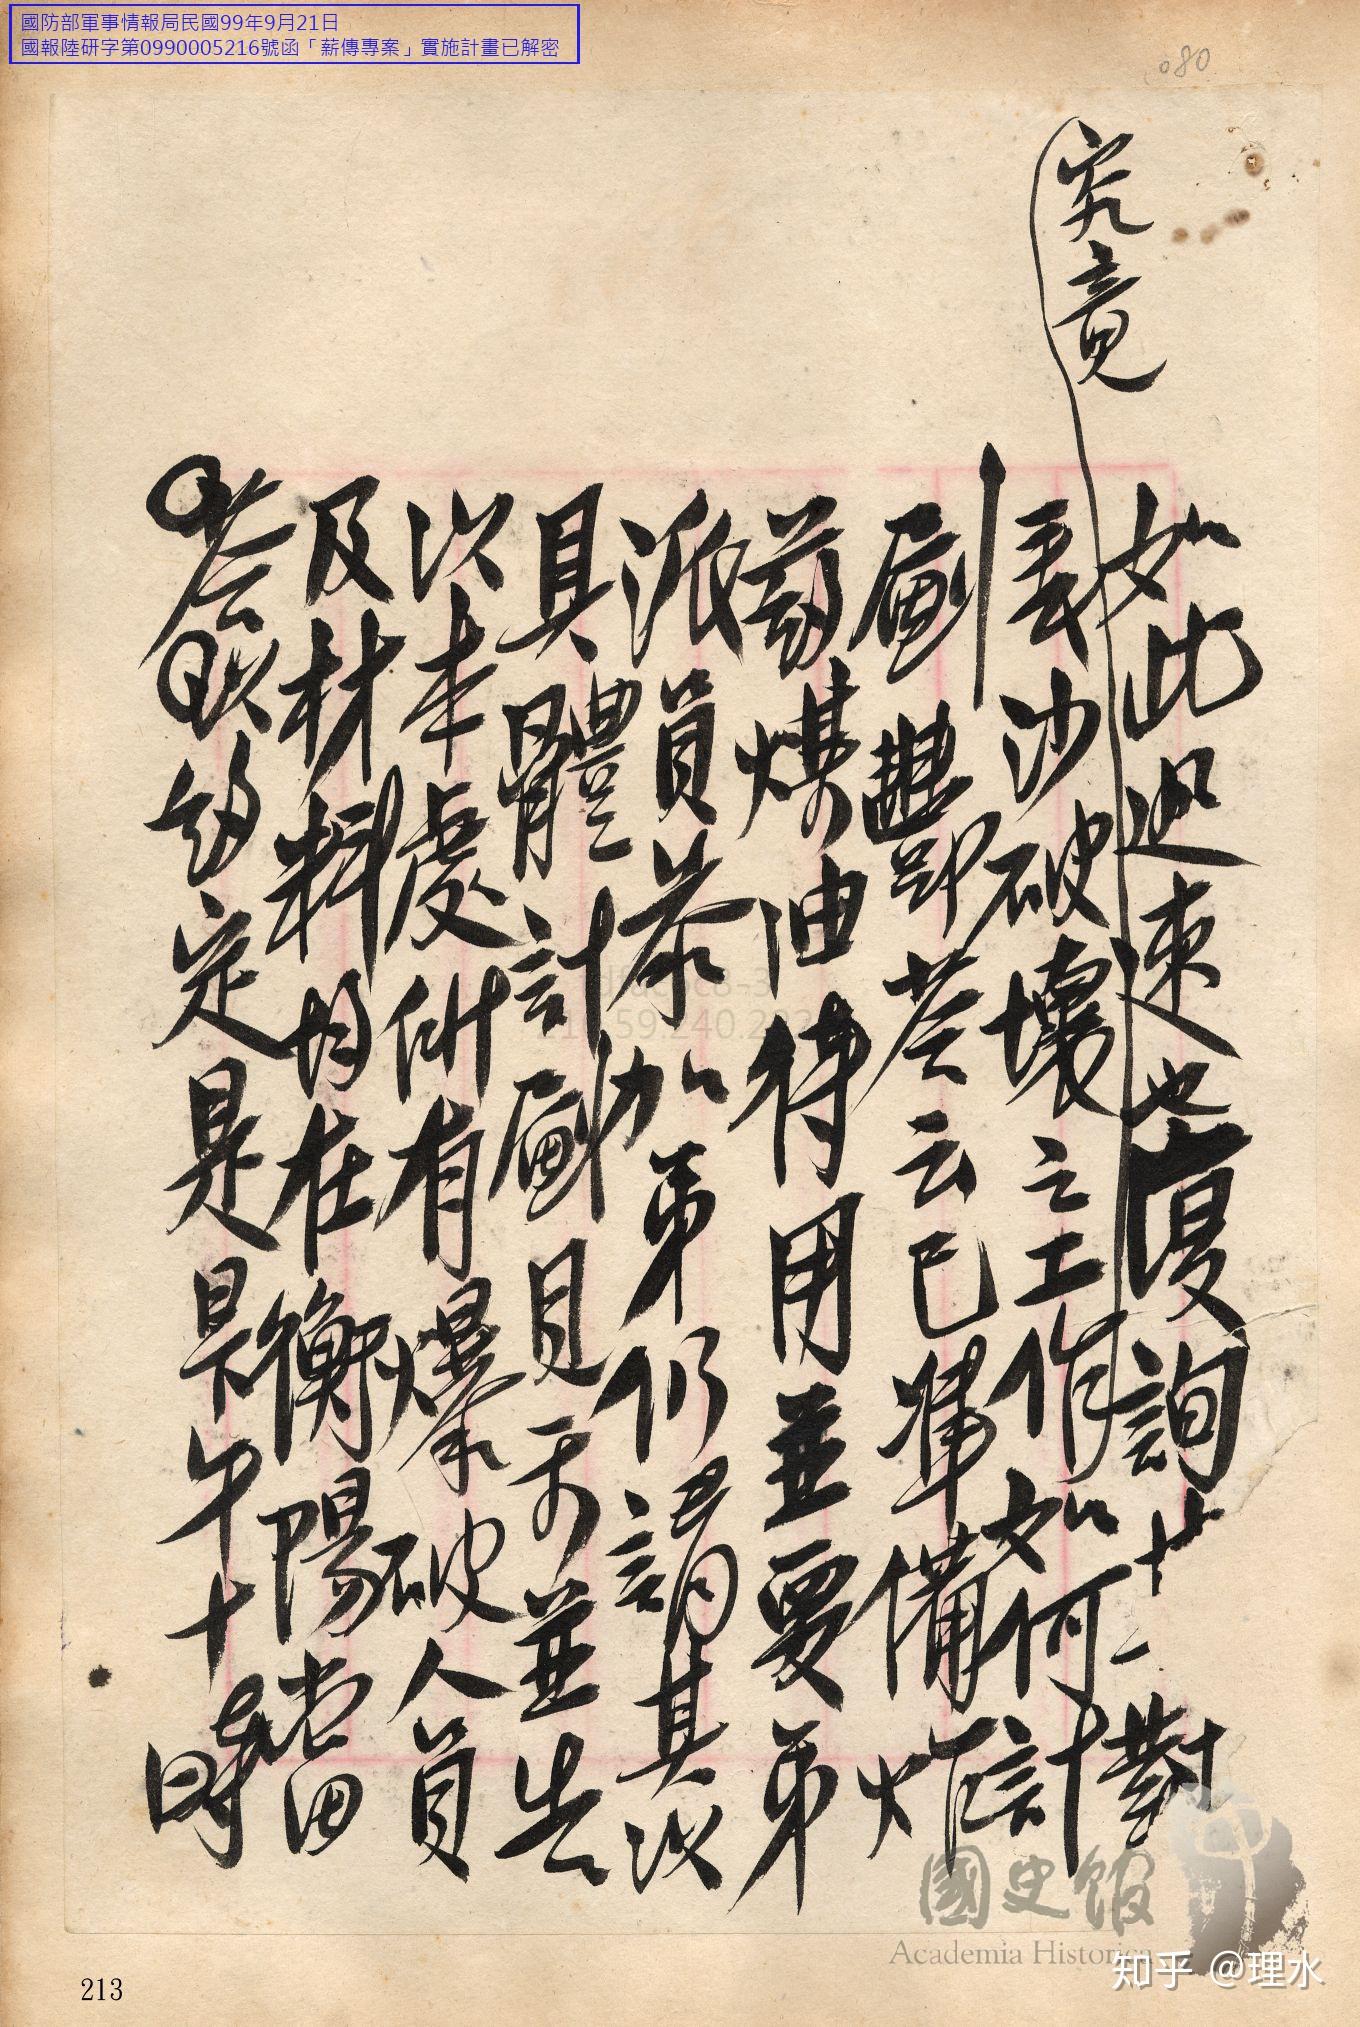 國防部軍事情報局民國99年9月21日
國報陸研字第0990005216號函「薪傳專案」實施計畫已解密
080
究竟
如此迅速也復詢其對
長沙破壞之工作如何計
劃酆即答云已準備炸
藥煤油待用並要弟
派員參加弟仍請其以
具體計劃見示並告
以本處所有爆破人員
及材料均在衡陽當
答以約定是晚午十時
國史館
Academia Historica
知乎 @理水
213